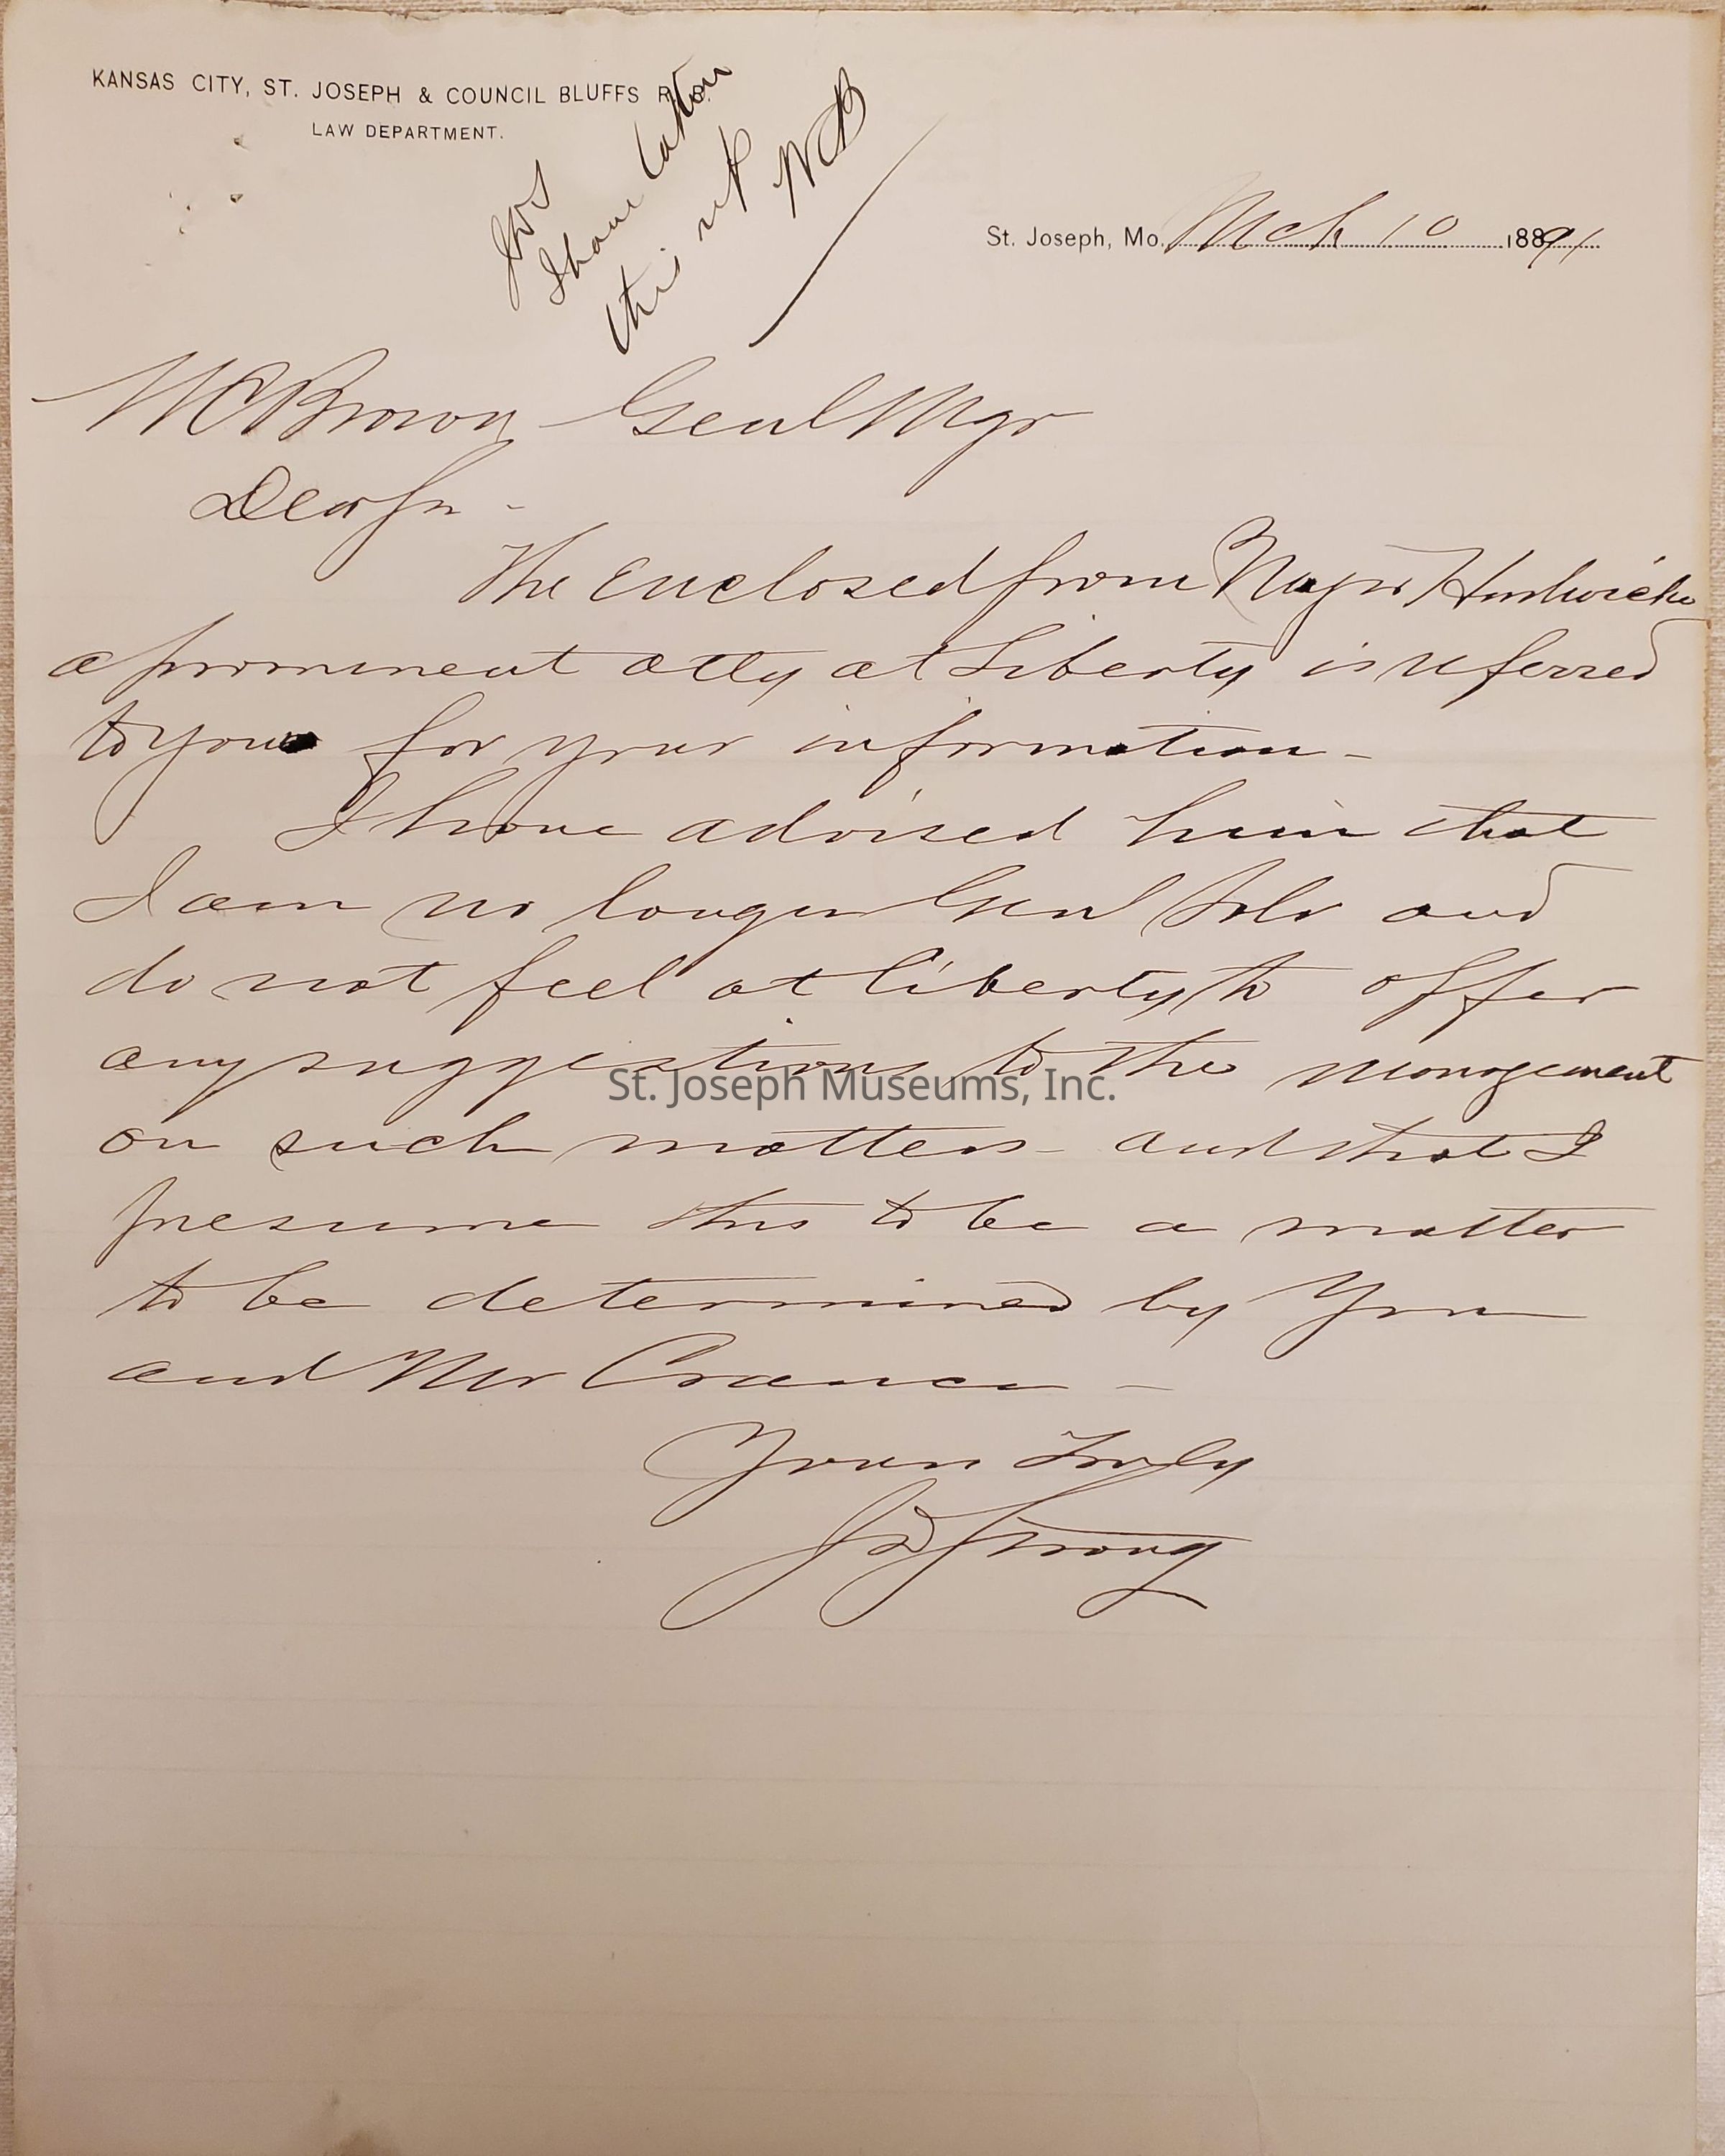 KANSAS CITY, ST. JOSEPH & COUNCIL BLUFFS R. R.
LAW DEPARTMENT.
I have taken
this up WCB
St. Joseph, Mo. Mch 10 1891
W C Brown Genl Mgr
Dear Sir -
The Enclosed from Major Hardwicke
a prominent atty at Liberty is referred
to you for your information -
I have advised him that
I am no longer Genl Solr and
do not feel at liberty to offer
any suggestions to the management
on such matters - and that I
presume this to be a matter
to be determined by you
and Mr Crance -
Yours Truly
J W Strong
St. Joseph Museums, Inc.